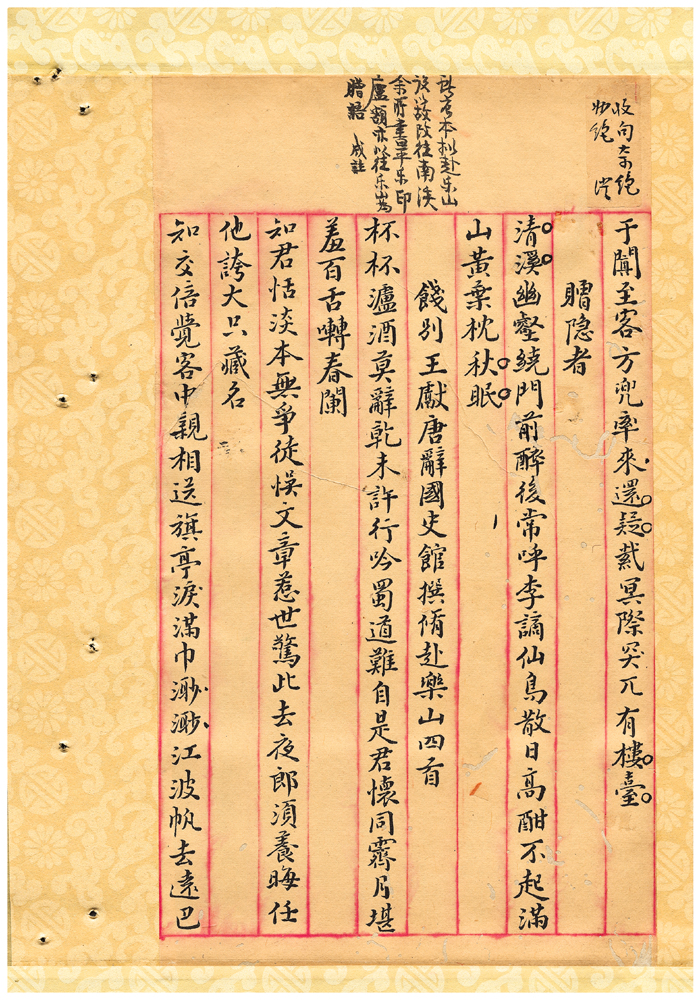 收句大奇絕
妙絕
于闐至客方兜率來還疑紫冥際突兀有樓臺
贈隐者
清溪幽壑繞門前醉後常呼李謫仙鳥散日高酣不起滿
山黃葉枕秋眠
餞別王獻唐辭國史館撰脩赴樂山四首
杯杯瀘酒莫辭乾未許行吟蜀道難自是君懷同霽月堪
羞百舌囀春闌
知君恬淡本無爭徒悮文章惹世驚此去夜郎須養晦任
他誇大只藏名
知交倍覺客中親相送旗亭淚滿巾渺渺江波帆去遠巴
本拟赴乐山
改往南溪
余所書平乐印
廬额亦以往乐山为
贈語 成註